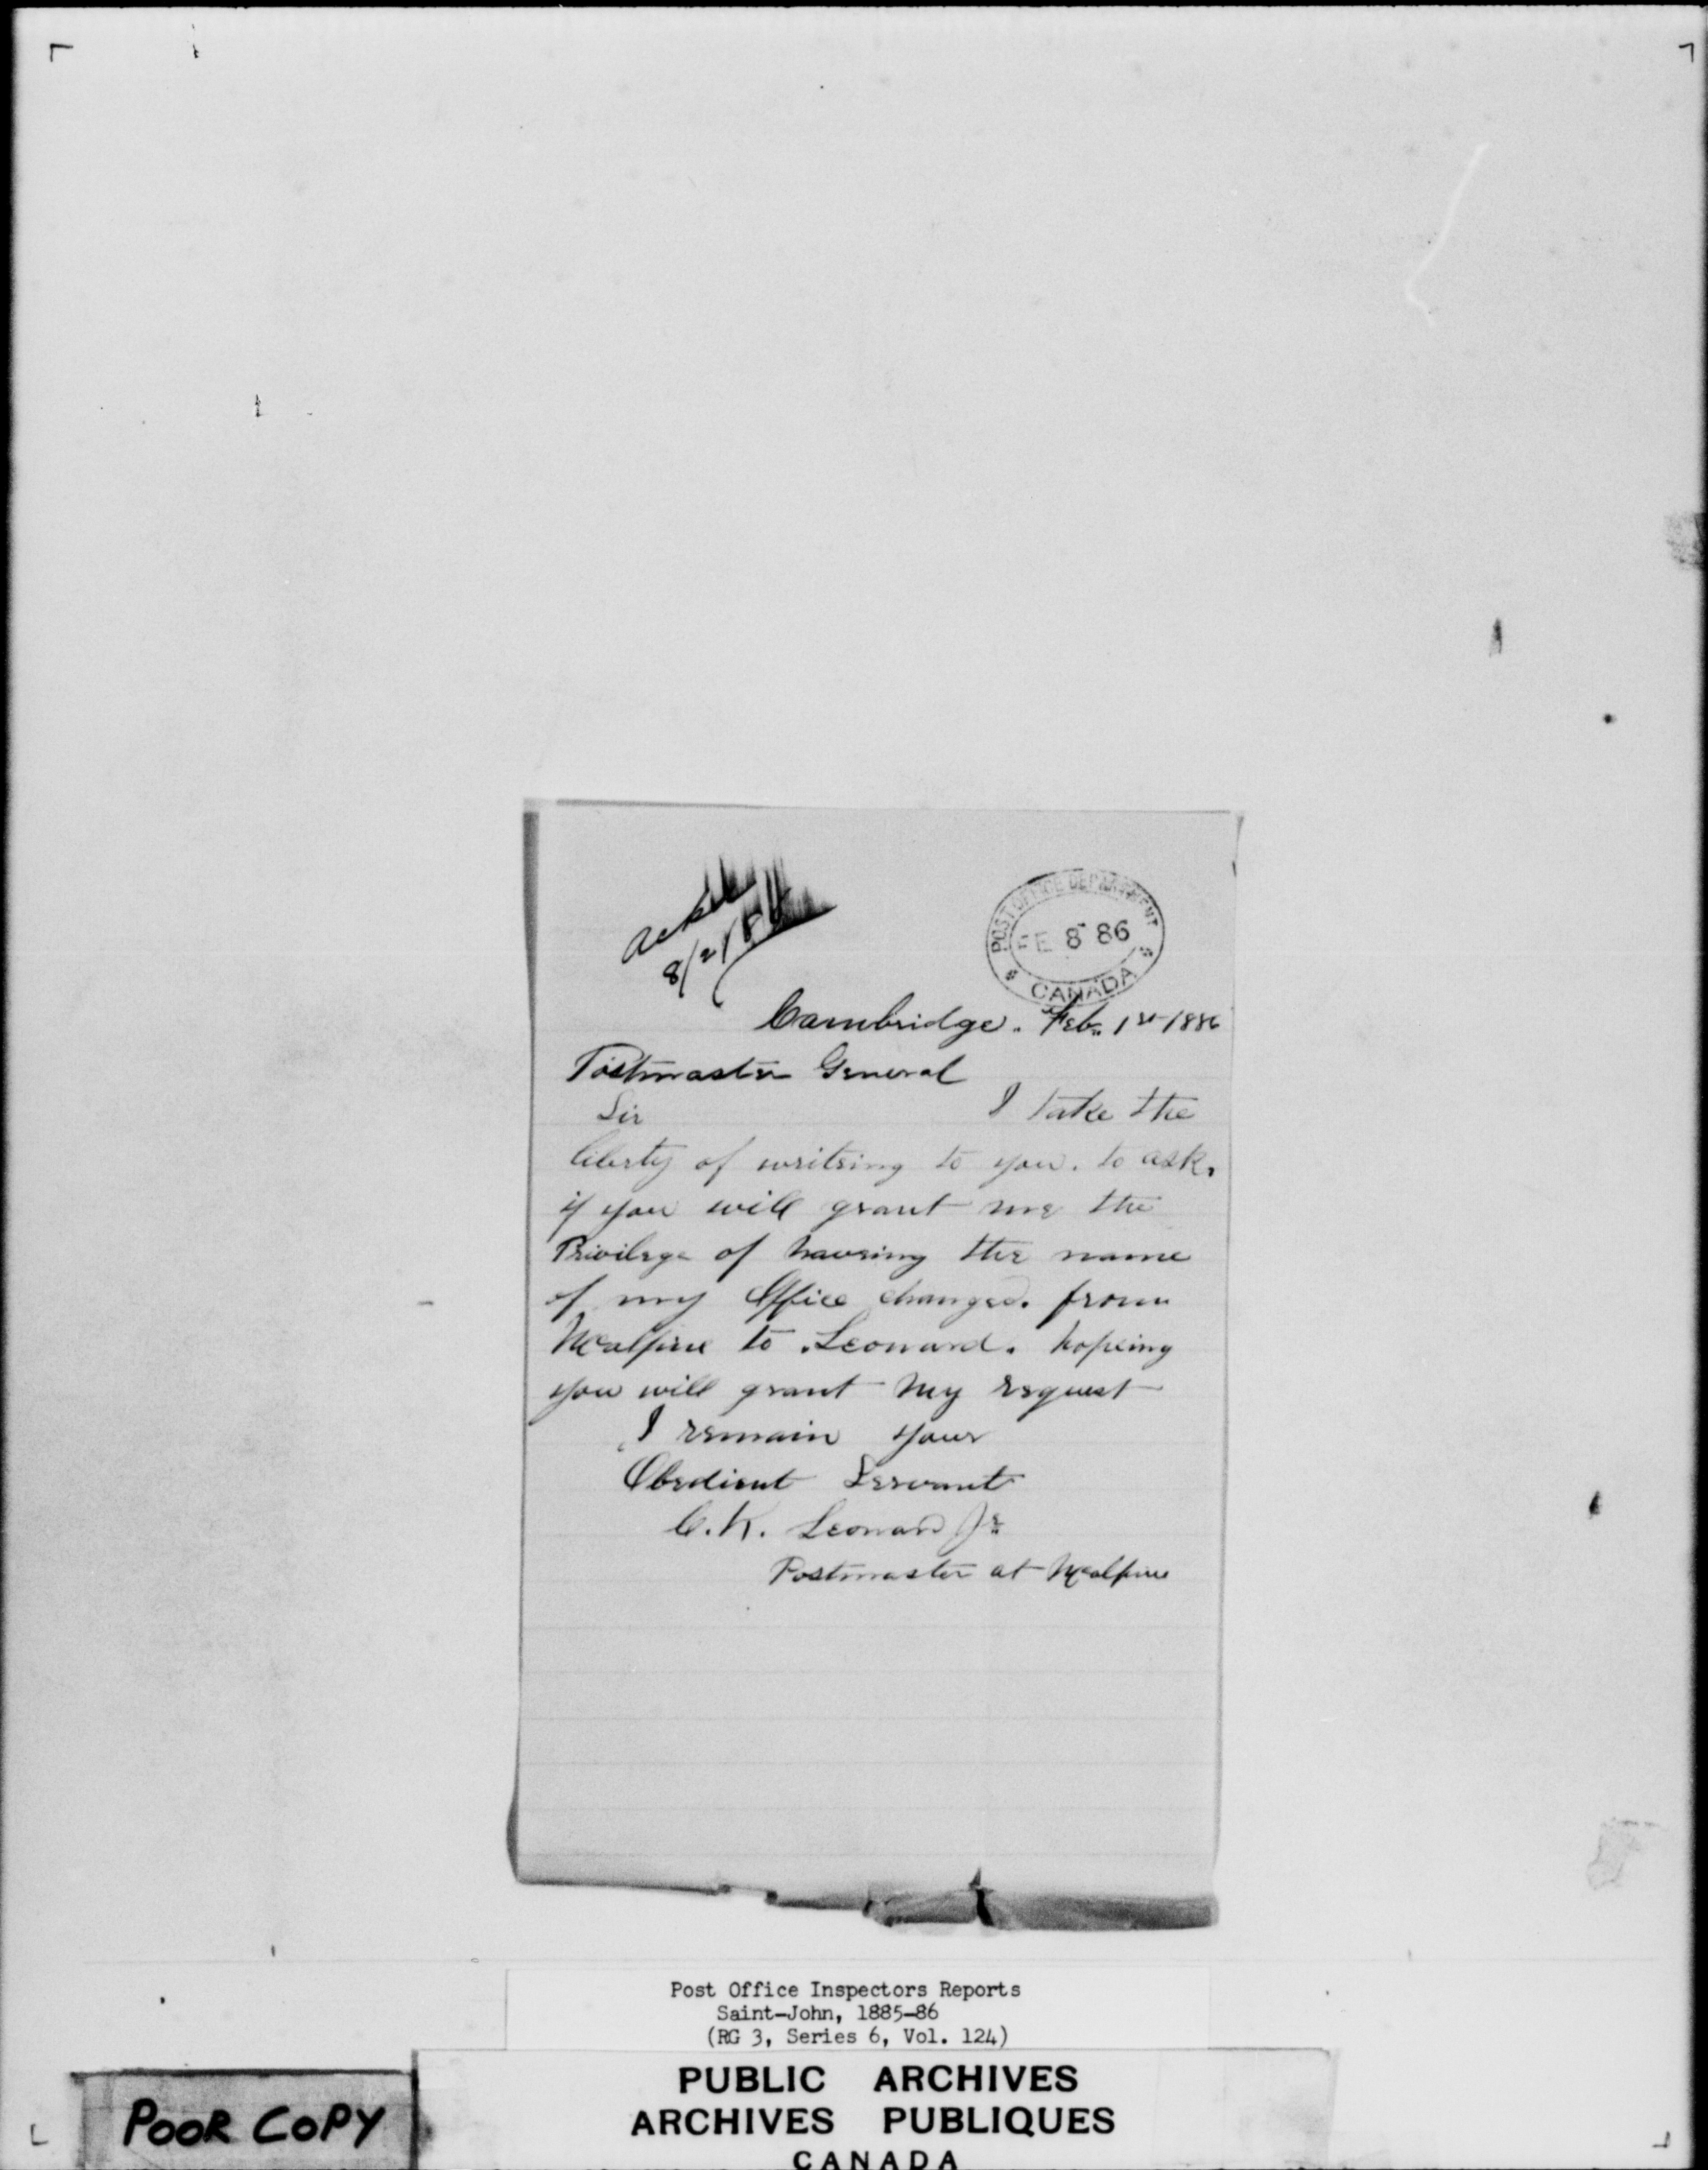 Ackd
8/2/86
POST OFFICE DEPARTMENT
FE 8 86
CANADA
Cambridge. Feb. 1st 1886
Postmaster General
Sir I take the
liberty of writeing to you. to ask.
if you will grant me the
Privilege of haveing the name
of my Office changed. from
McAlpine to Leonard. hopeing
you will grant my request
I remain your
Obedient Servant
C. K. Leonard Jr
Postmaster at McAlpine
Post Office Inspectors Reports
Saint-John, 1885-86
(RG 3, Series 6, Vol. 124)
PUBLIC ARCHIVES
ARCHIVES PUBLIQUES
CANADA
POOR COPY